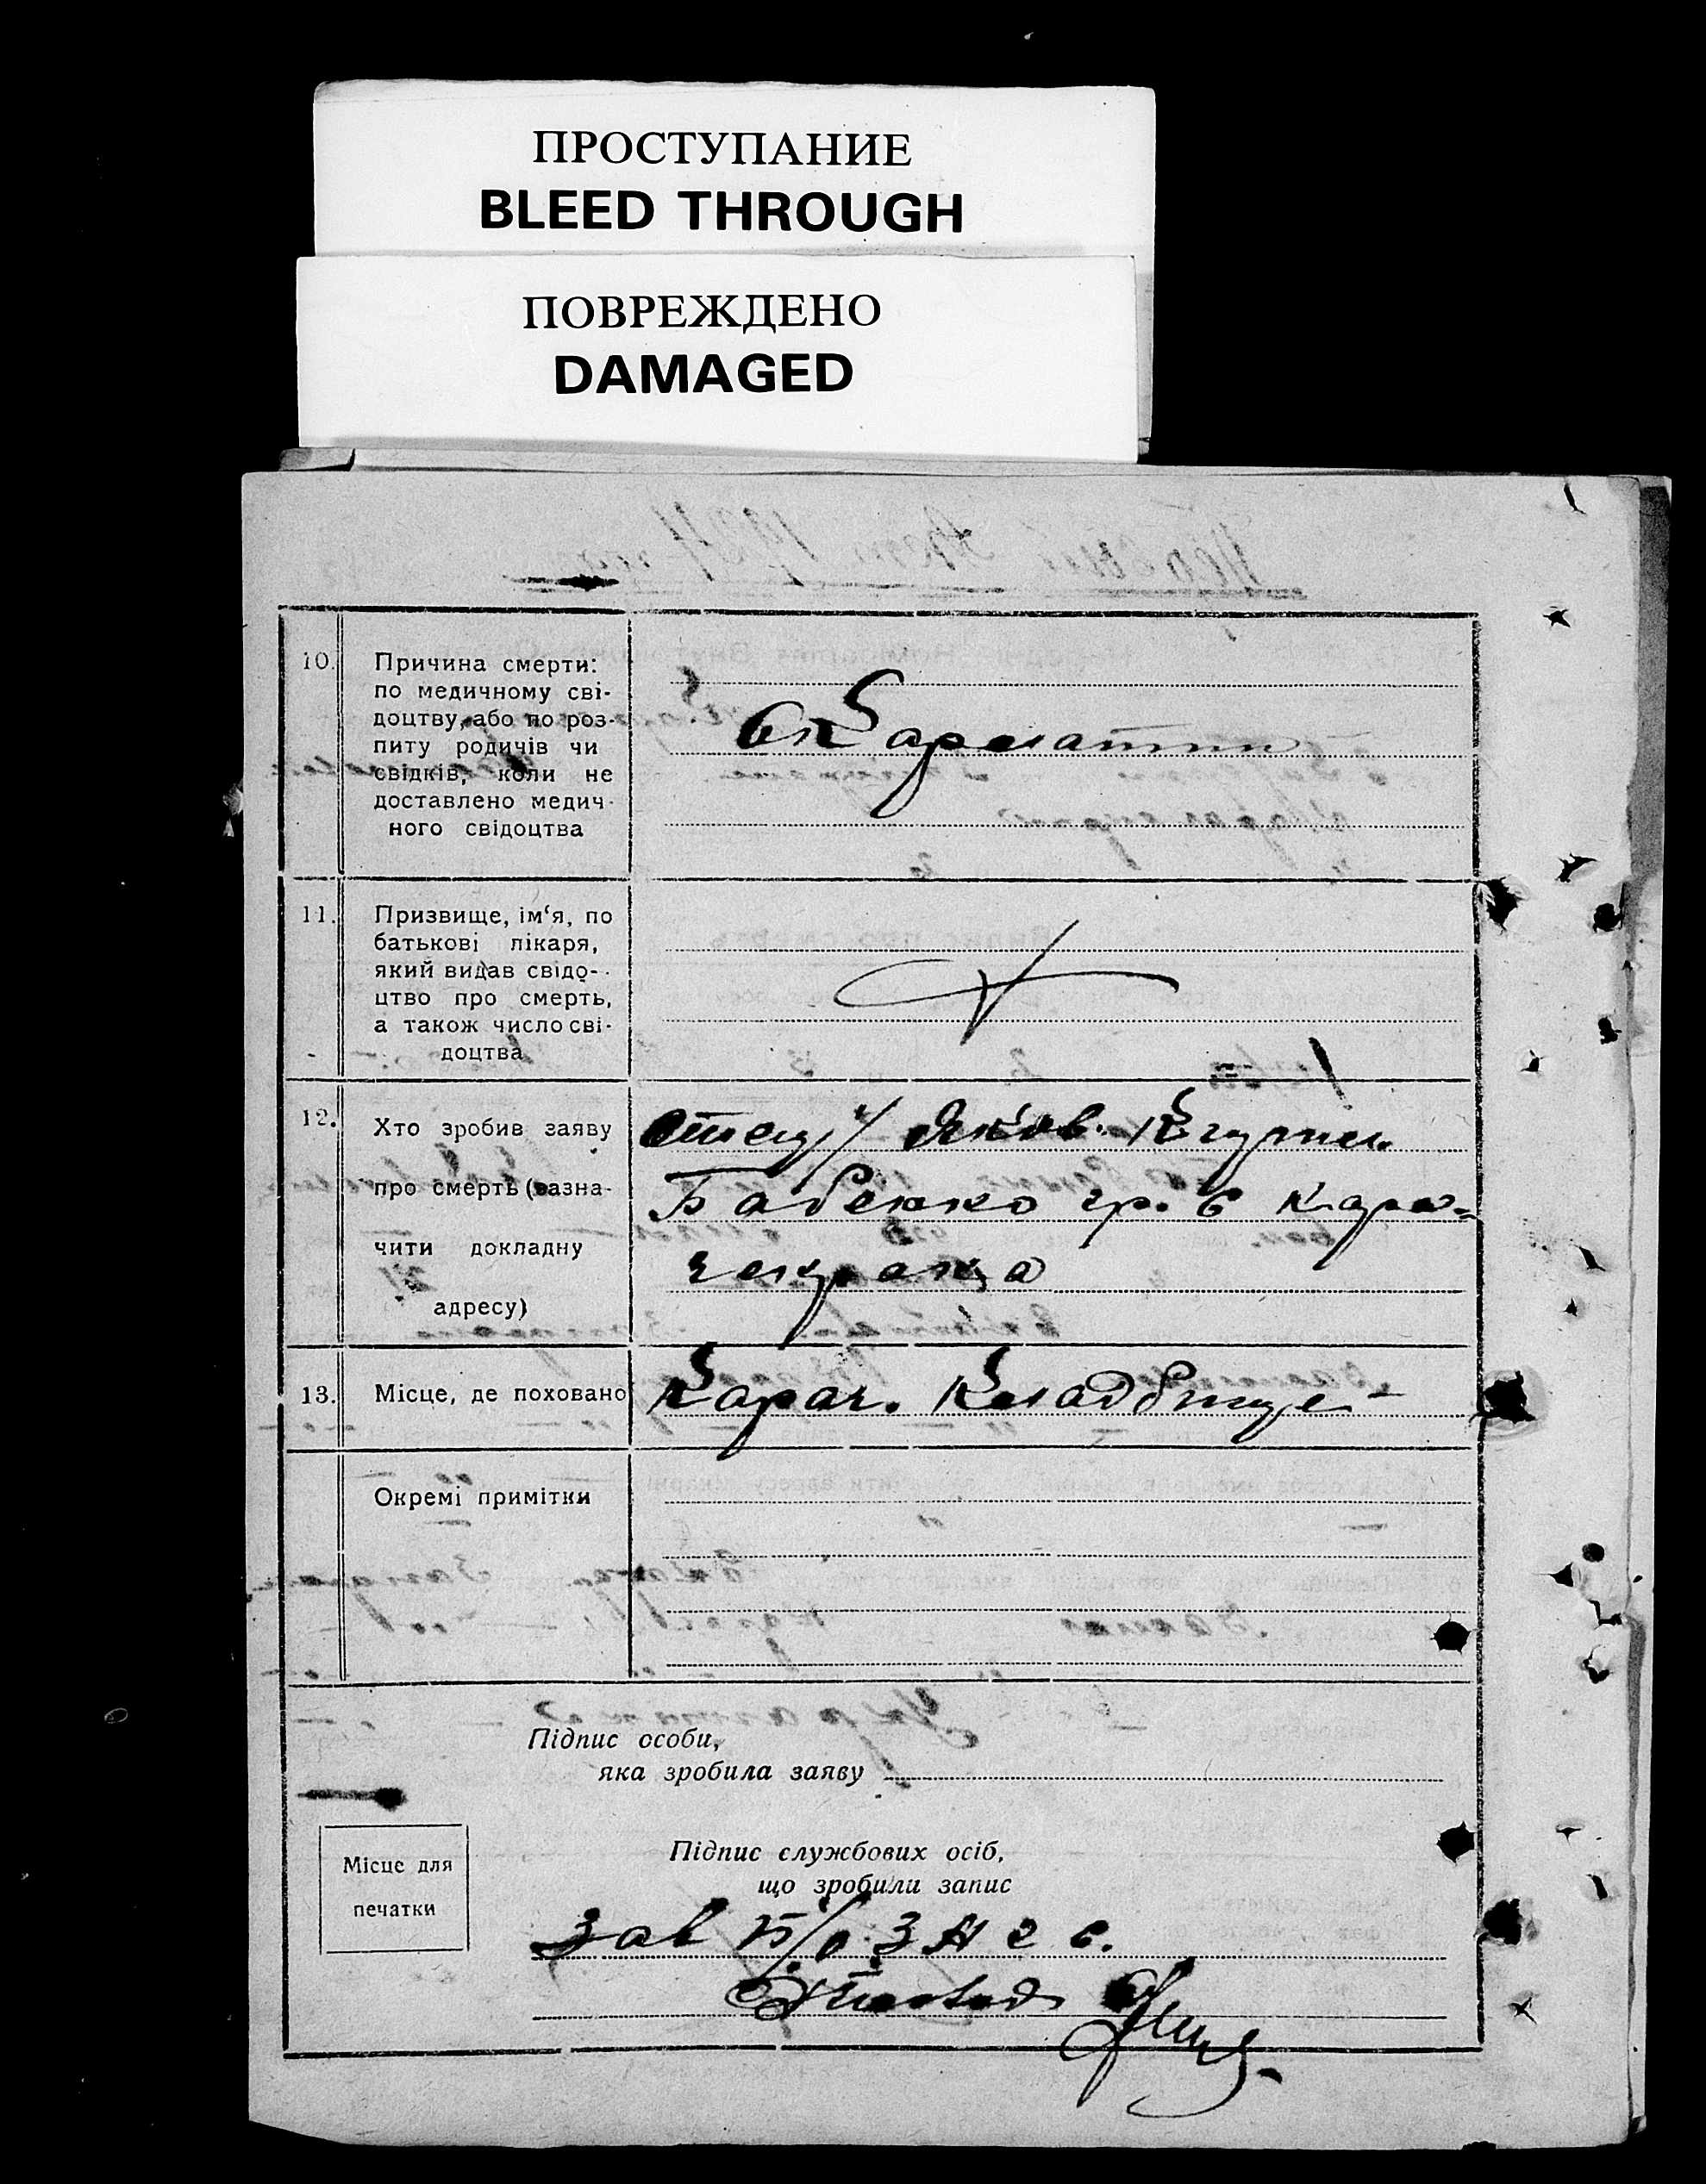 ПРОСТУПАНИЕ
BLEED THROUGH
ПОВРЕЖДЕНО
DAMAGED
10.
Причина смерти:
по медичному сві-
доцтву, або по роз-
питу родичів чи
свідків, коли не
доставлено медич-
ного свідоцтва
11.
Призвище, ім‘я, по
батькові лікаря,
який видав свідо-
цтво про смерть,
а також число сві-
доцтва
12.
Хто зробив заяву
про смерть (зазна-
чити докладну
адресу)
Отец Яков.
Бабенко гр. с Кара-
чекрака
13.
Місце, де поховано
Карач. Кладбище
Окремі примітки
Підпис особи,
яка зробила заяву
Місце для
печатки
Підпис службових осіб,
що зробили запис
Зав п/о ЗАГС.